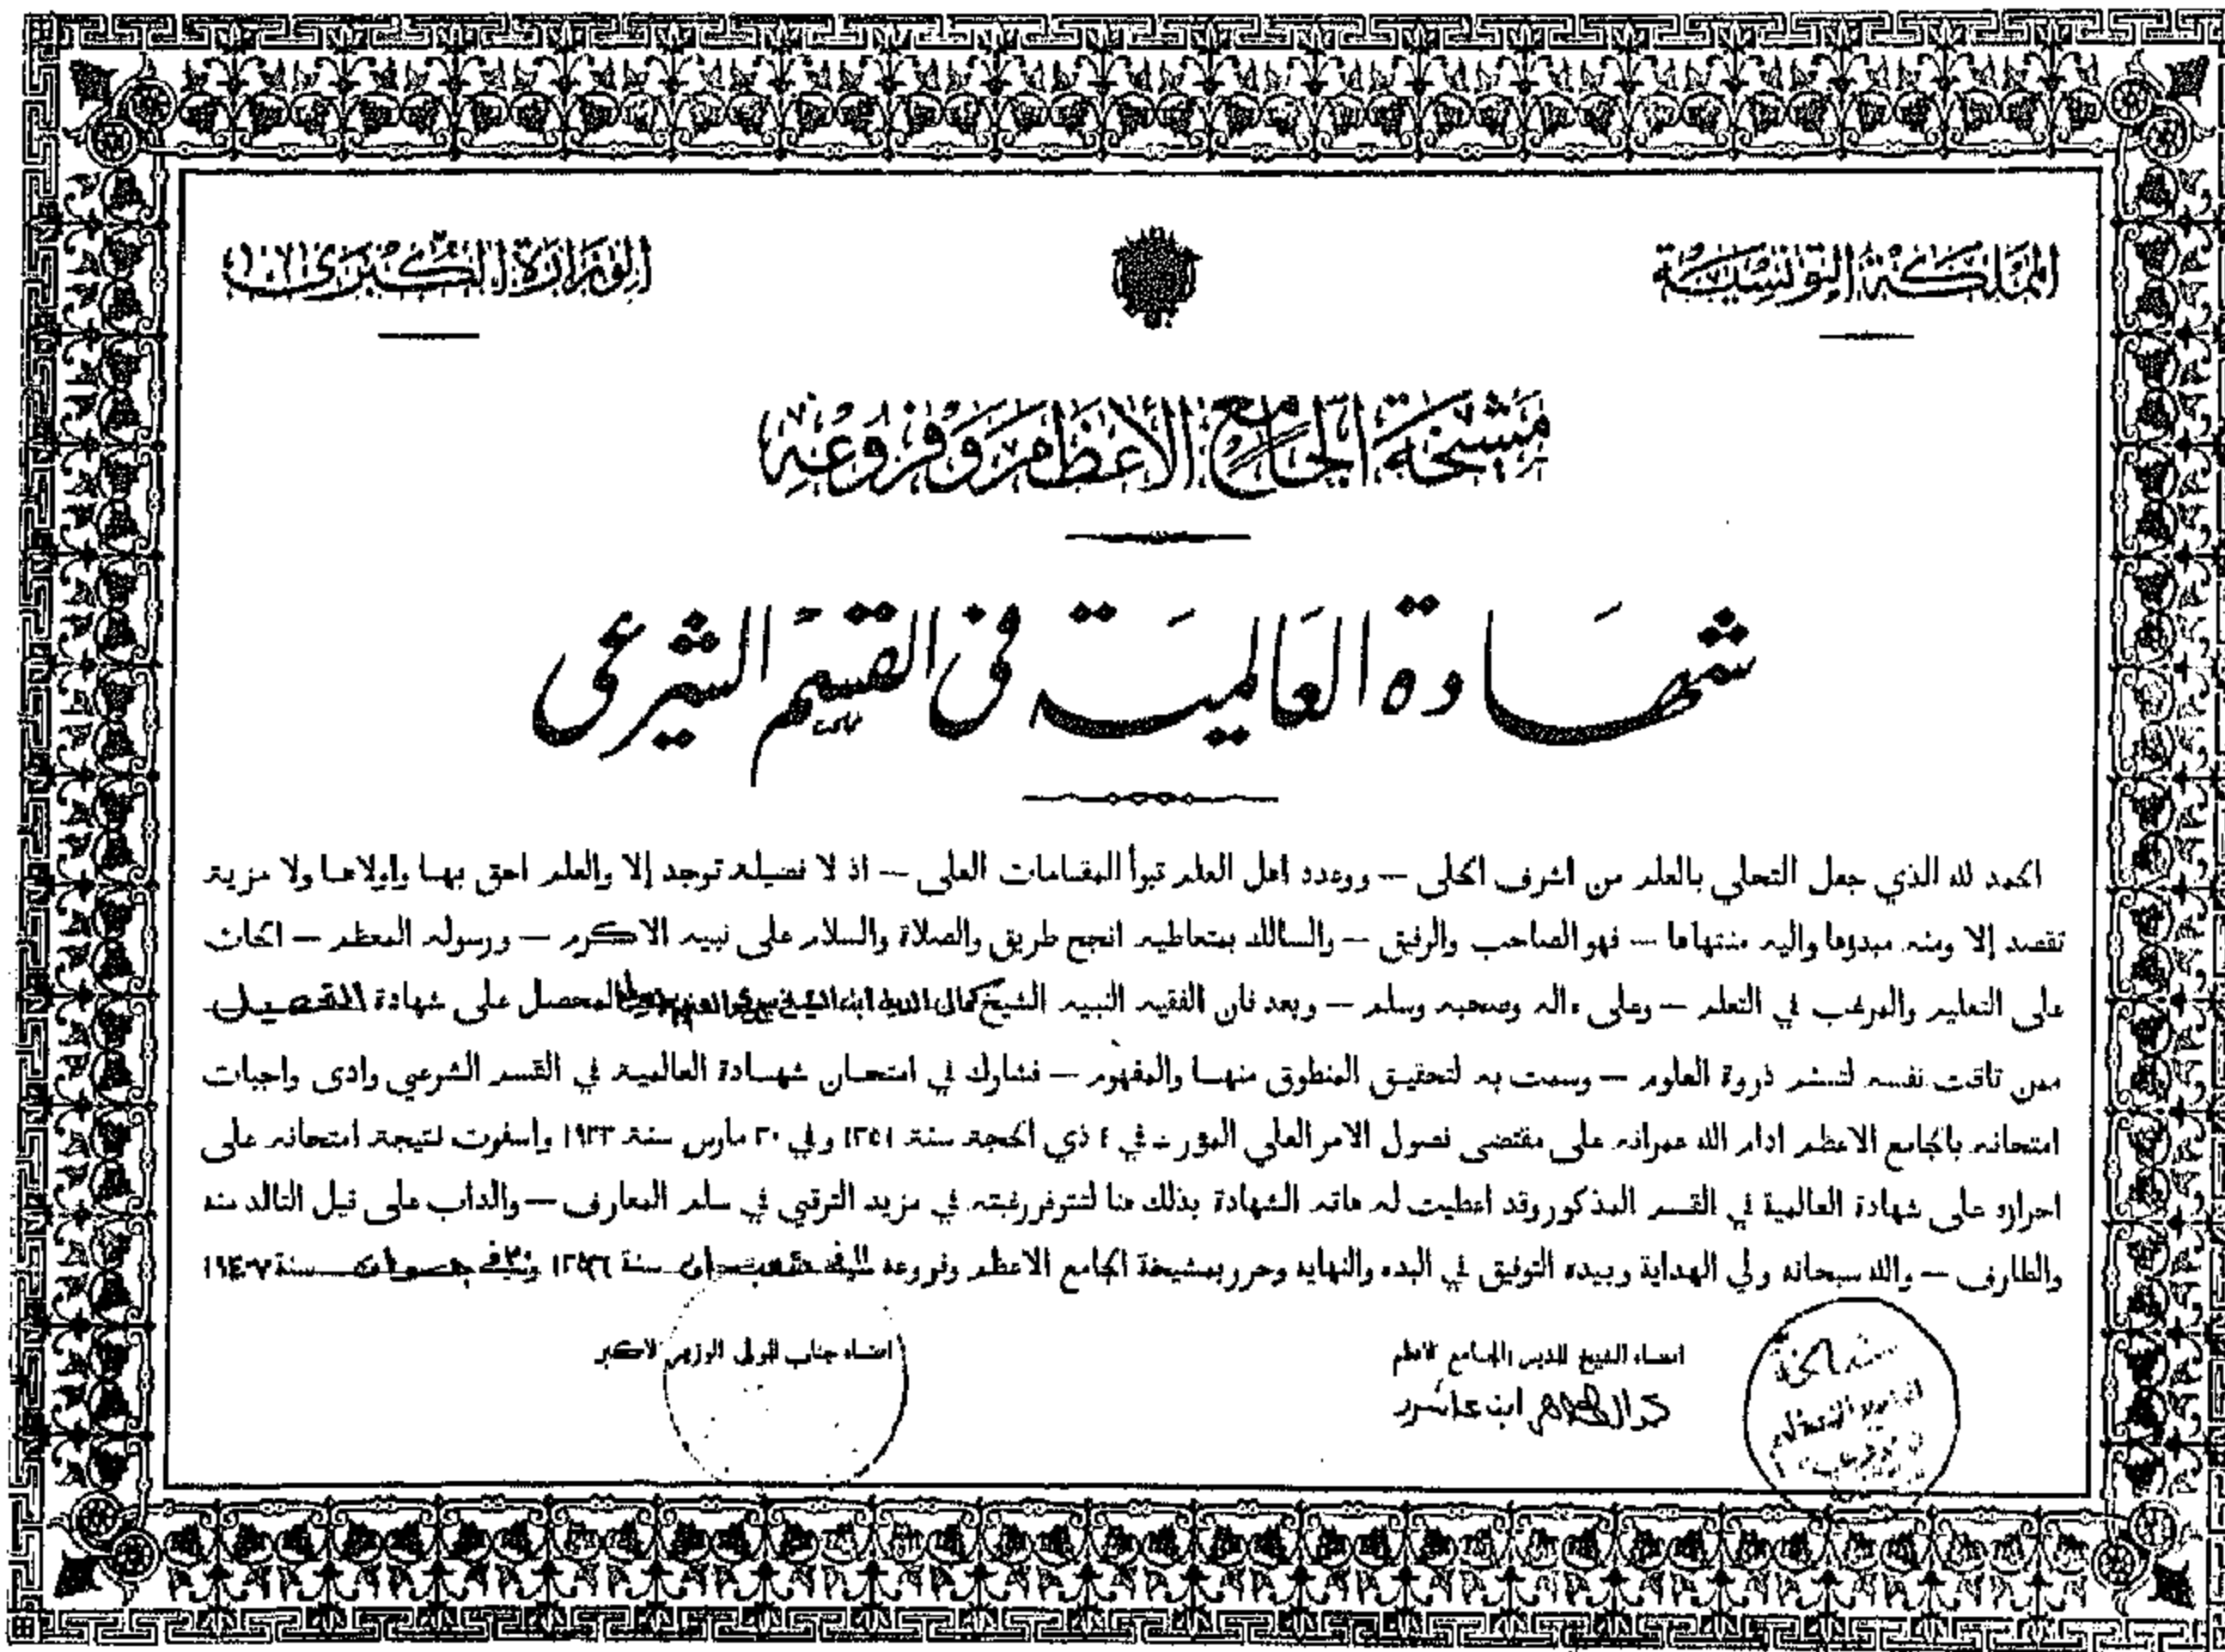 المملكة التونسية
الوزارة الكبرى
مشيخة الجامع الأعظم وفروعه
شهادة العالمية في القسم الشرعي
الحمد لله الذي جعل التحلي بالعلم من اشرف الحلى — ووعد اهل العلم تبوأ المقامات العلى — اذ لا فضيلة توجد إلا والعلم احق بها واولاها ولا مزية
تقصد إلا ومنه مبدؤها واليه منتهاها — فهو الصاحب والرفيق — والسالك بمتعاطيه انجح طريق والصلاة والسلام على نبيه الاكرم — ورسوله المعظم — الحاث
على التعليم والمرغب في التعلم — وعلى ءاله وصحبه وسلم — وبعد فان الفقيه النبيه الشيخ كمال الدين ابن الشيخ المحصل على شهادة التحصيل
ممن تاقت نفسه لتسنم ذروة العلوم — وسمت به لتحقيق المنطوق منها والمفهوم — فشارك في امتحان شهادة العالمية في القسم الشرعي وادى واجبات
امتحانه بالجامع الاعظم ادام الله عمرانه على مقتضى فصول الامر العلي المؤرخ في ٤ ذي الحجة سنة ١٣٥١ وفي ٣٠ مارس سنة ١٩٣٣ واسفرت نتيجة امتحانه على
احرازه على شهادة العالمية في القسم المذكور وقد اعطيت له هاته الشهادة بذلك هنا لتتوفر رغبته في مزيد الترقي في سلم المعارف — والداب على نيل التالد منه
والطارف — والله سبحانه ولي الهداية وبيده التوفيق في البدء والنهاية وحرر بمشيخة الجامع الاعظم وفروعه في شعبان سنة ١٣٦٦ وفي جوان سنة ١٩٤٧
امضاء الشيخ المدير للجامع الاعظم
محمد الطاهر ابن عاشور
امضاء جناب المولى الوزير الاكبر